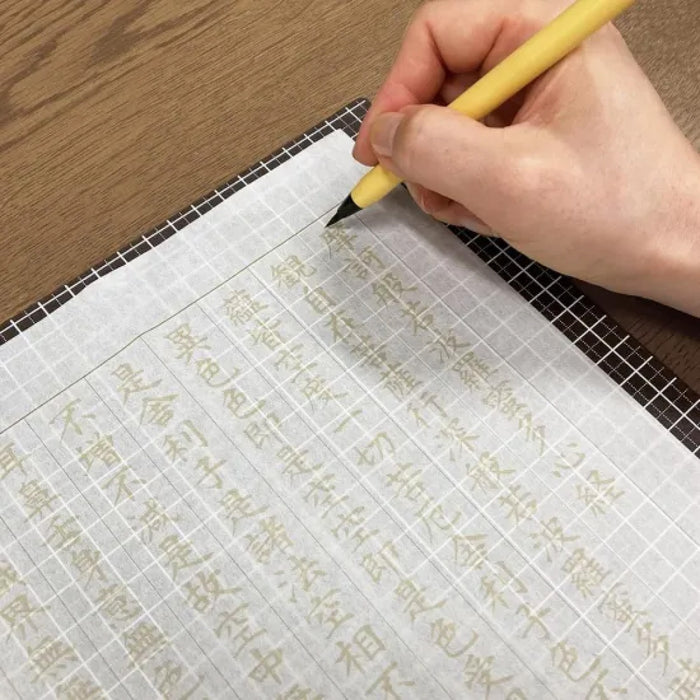 摩訶般若波羅蜜多心経
観自在菩薩行深般若波羅蜜多
蘊皆空度一切苦厄舎利子色不
異色色即是空空即是色受
是舎利子是諸法空相不
不増不減是故空中無
耳鼻舌身意無色
界無無